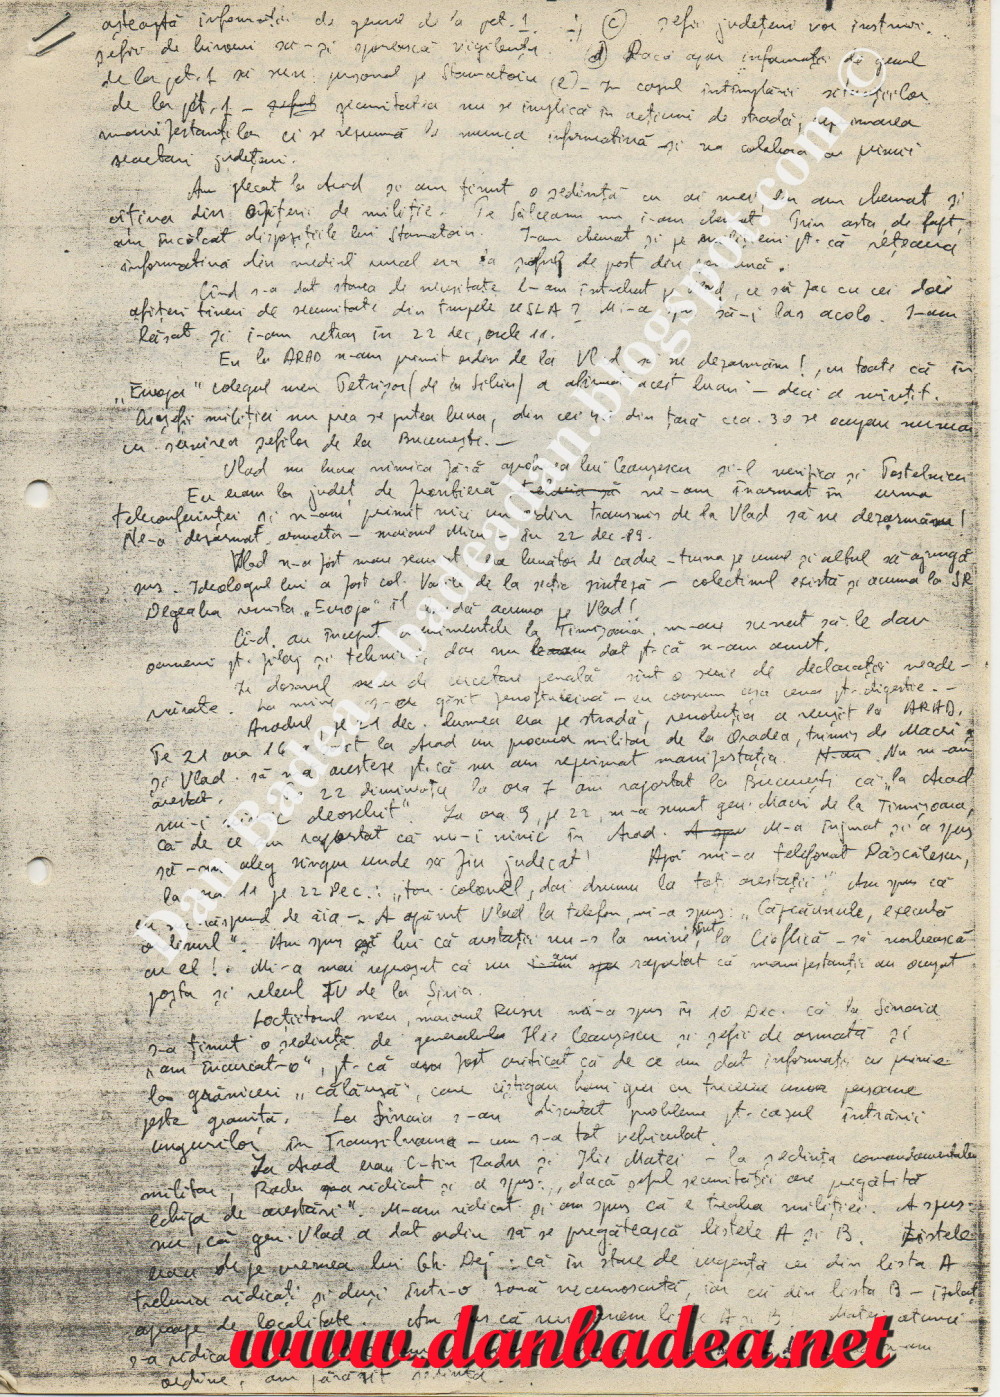 așteaptă informații de genul de la pct. 1. c) șefii județeni vor instrui
șefii de birouri să-și sporească vigilența d) Dacă apar informații de genul
de la pt. 1 să sun personal pe Stamatoiu (e) - În cazul întîmplării situațiilor
de la pt. 1 - securitatea nu se implică în acțiuni de stradă, reprimarea
manifestanților ci se rezumă la munca informativă și va colabora cu primii
secretari județeni.
Am plecat la Arad și am ținut o ședință cu ai mei! I-am chemat și
cîțiva din ofițerii de miliție. Pe Sălceanu nu i-am chemat! Prin asta, de fapt,
am încălcat dispozițiile lui Stamatoiu. I-am chemat și pe milițieni pt. că rețeaua
informativă din mediul rural era la șeful de post din comună.
Cînd s-a dat starea de necesitate l-am întrebat pe Vlad, ce să fac cu cei doi
ofițeri tineri de securitate din trupele USLA? Mi-a spus să-i las acolo. I-am
lăsat și i-am retras în 22 dec, orele 11.
Eu la ARAD n-am primit ordin de la Vlad să ne dezarmăm!, cu toate că în
"Europa" colegul meu Petrișor (de la Sibiu) a afirmat acest lucru - deci a mințit.
Că șefii miliției nu prea se putea lucra, din cei 41 din țară cca. 30 se ocupau numai
cu servirea șefilor de la București. -
Vlad nu lucra nimica fără aprobarea lui Ceaușescu și-l verifica și Postelnicu
Eu eram la județ de frontieră ne-am înarmat în urma
teleconferinței și n-am primit nici un ordin transmis de la Vlad să ne dezarmăm!
Ne-a dezarmat armata - maiorul - în 22 dec. 89.
Vlad n-a fost mare securist, era lucrător de cadre - turna pe unul și altul să ajungă
sus. Ideologul lui a fost col. de la secția sinteză - colectivul există și acuma la SRI
Degeaba revista "Europa" îl laudă acuma pe Vlad!
Cînd au început evenimentele la Timișoara m-au sunat să le dau
oameni pt. filaj și tehnică, dar nu le-am dat pt. că n-am avut.
În dosarul meu de cercetare penală sînt o serie de declarații neade-
vărate. La mine s-ar găsit - eu consum așa ceva pt. digestie. -
Aradul pe 21 dec. lumea era pe stradă, revoluția a reușit la ARAD.
Pe 21 ora 16 la Arad un procuror militar de la Oradea, trimis de Macri
și Vlad să mă aresteze pt. că nu am reprimat manifestația. Nu m-au
arestat. 22 dimineața la ora 7 am raportat la București că "la Arad
nu-i nimic deosebit". La ora 9, pe 22, m-a sunat gen. Macri de la Timișoara,
că de ce am raportat că nu-i nimic în Arad. M-a înjurat și a spus
să-mi aleg singur unde să fiu judecat! Apoi mi-a telefonat Păscălescu,
la ora 11 pe 22 Dec.: "tov. colonel, dai drumu la toți arestații". Am spus că
eu răspund de ăia - A apărut Vlad la telefon, mi-a spus: "Căpcăunule, execută
ordinul". Am spus lui că arestații nu-s la mine, sunt la Cioflică - să vorbească
cu el!. Mi-a mai reproșat că nu am raportat că manifestanții au ocupat
poșta și releul TV de la Șiria.
Locțiitorul meu, maiorul Rusu mi-a spus în 10 Dec. că la Sinaia
s-a ținut o ședință de generalul Ilie Ceaușescu și șefii de armată și
"am încurcat-o", pt. că am fost criticat că de ce am dat informații cu privire
la grănicerii "călăuză", care cîștigau bani grei cu trecerea unor persoane
peste graniță. La Sinaia s-au discutat probleme pt. cazul intrării
ungurilor în Transilvania - cum s-a tot vehiculat.
La Arad erau C-tin Radu și Ilie Matei - la ședința comandamentului
militar, Radu s-a ridicat și a spus: "dacă șeful securității are pregătită
echipa de arestări". M-am ridicat și am spus că e treaba miliției. A spus:
nu, că gen. Vlad a dat ordin să se pregătească listele A și B. Listele
erau de pe vremea lui Gh. Dej: că în stare de urgență cei din lista A
trebuia ridicați și duși într-o zonă necunoscută, iar cei din lista B - izolați
aproape de localitate. Am spus că nu avem listele A și B. Matei atunci
s-a ridicat
ordine, am părăsit ședința.
Dan Badea - badeadan.blogspot.com ©
www.danbadea.net